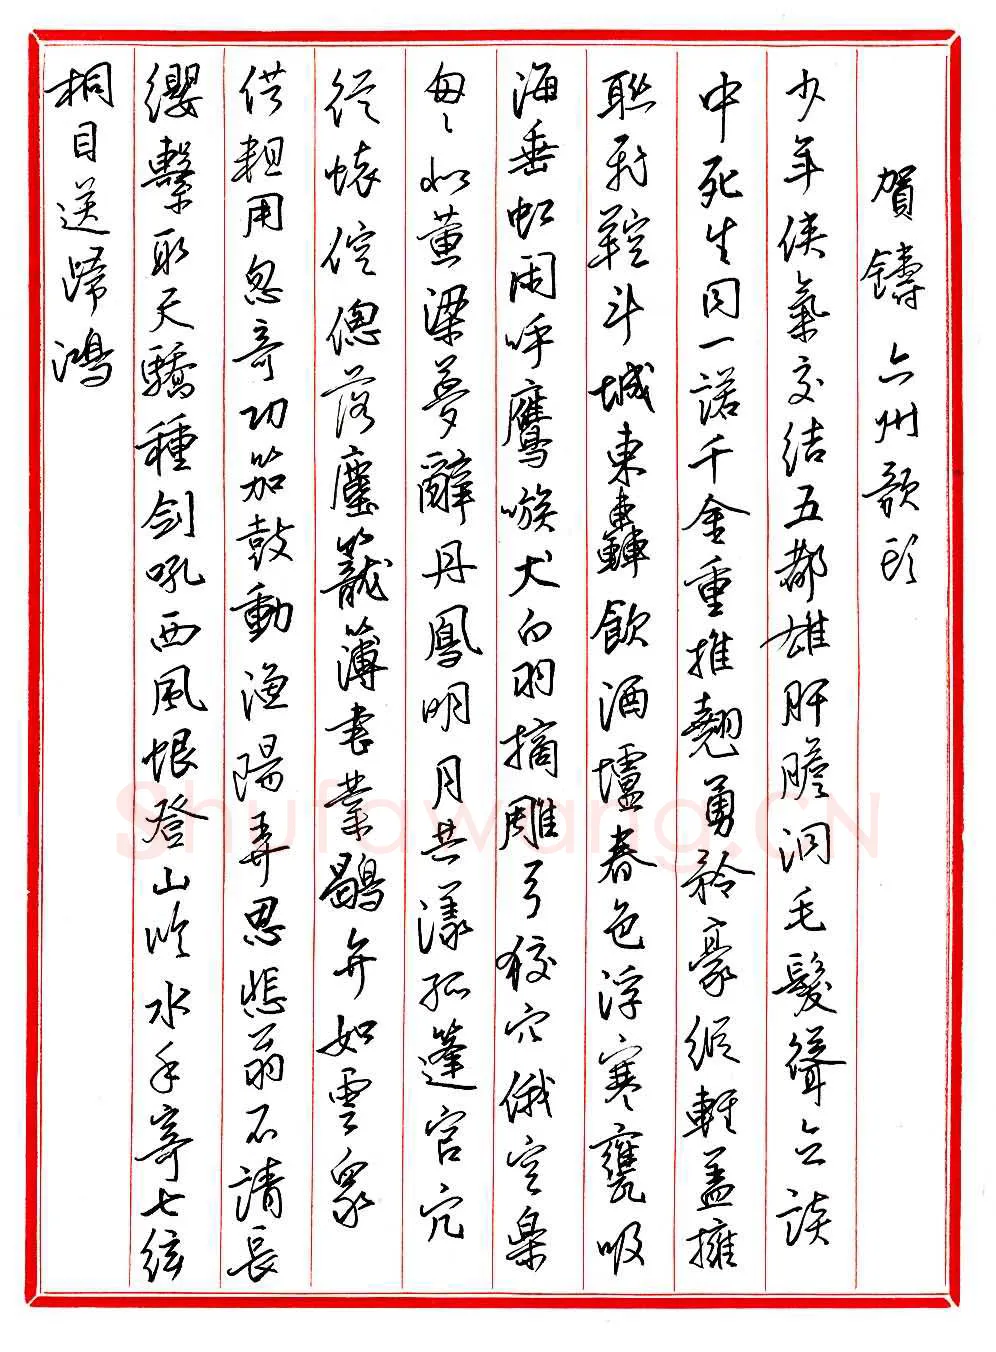 賀鑄 六州歌頭
少年俠氣交結五都雄肝膽洞毛髮聳立談
中死生同一諾千金重推翹勇矜豪縱輕蓋擁
聯飛鞚斗城東轟飲酒壚春色浮寒甕吸
海垂虹閑呼鷹嗾犬白羽摘雕弓狡穴俄空樂
匆匆似黃粱夢辭丹鳳明月共漾孤蓬官冗
從懷倥傯落塵籠簿書叢鶡弁如雲眾
供粗用忽奇功笳鼓動漁陽弄思悲翁不請長
纓繫取天驕種劍吼西風恨登山臨水手寄七絃
桐目送歸鴻
Shufawang.CN